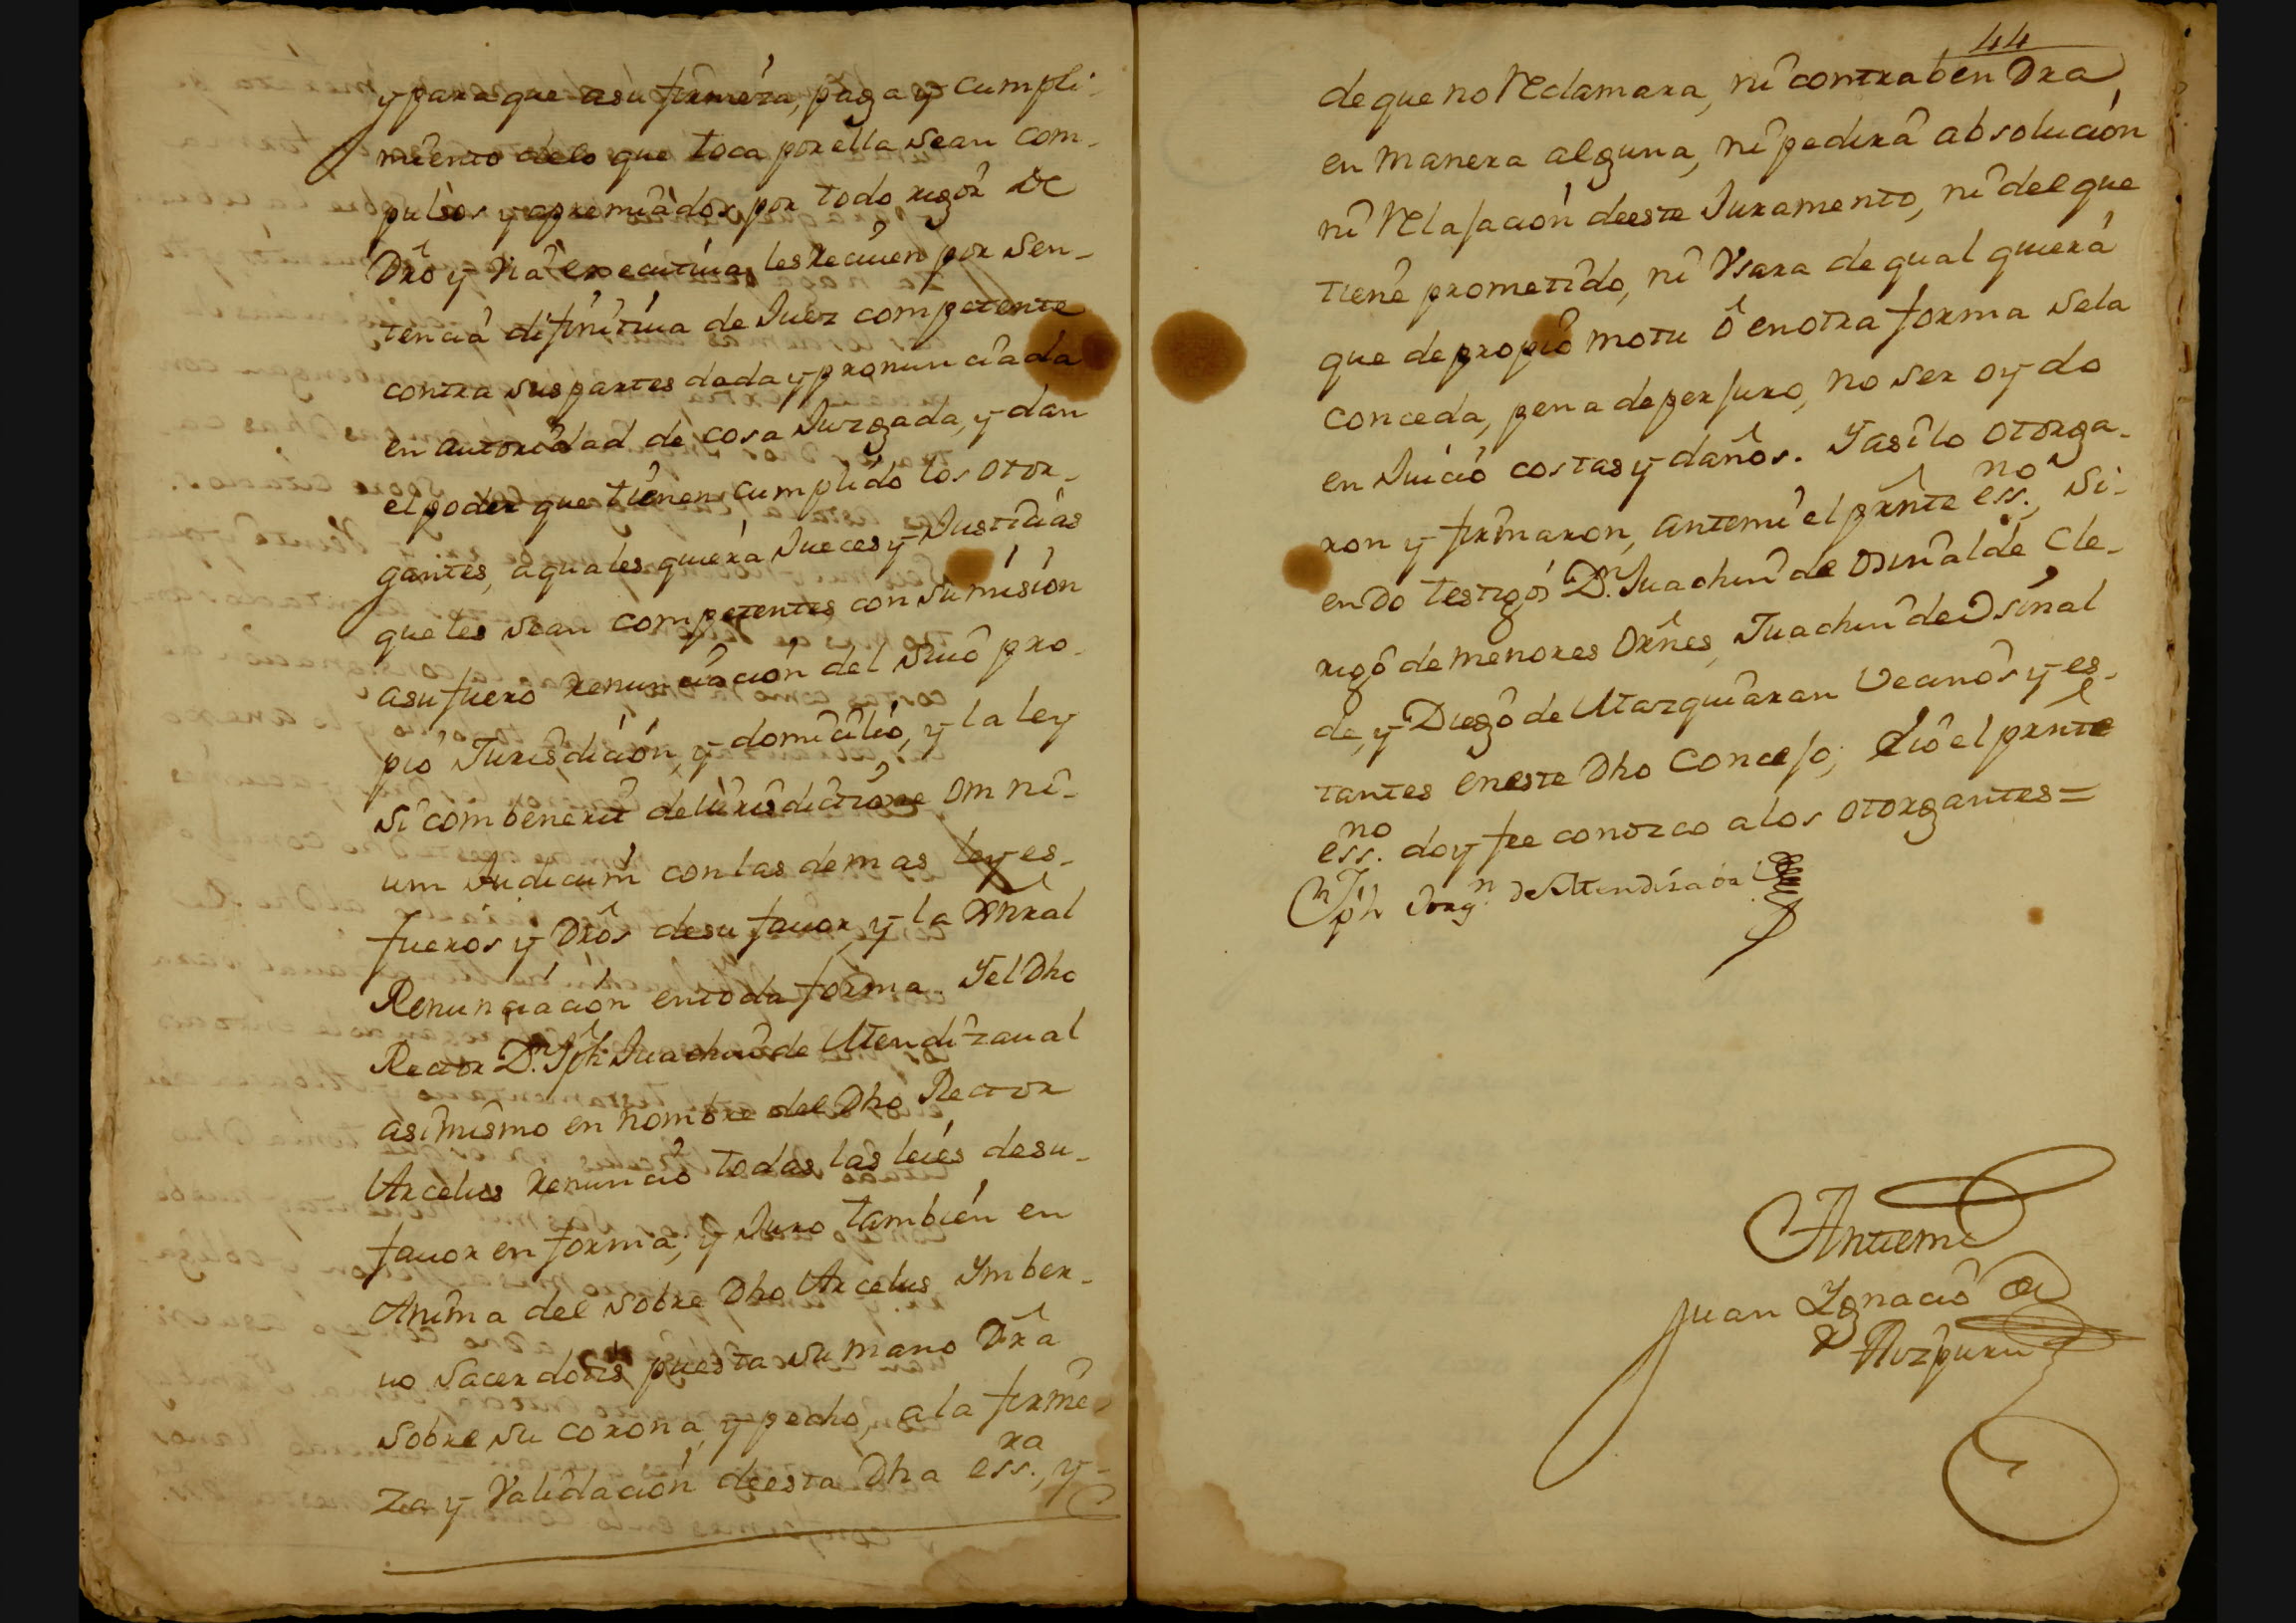 y para que asu firmeza, paga y cumpli-
miento delo que toca por ella sean com-
pulsos y apremiados por todo rigor de
Dro y via executiua, les Reciuen por sen-
tencia difinitiua de Juez competente
contra sus partes dada y pronunciada
en autoridad de cosa Juzgada, y dan
el poder que tienen cumplido los otor-
gantes, aquales quiera Jueces y Justicias
queles sean competentes con sumision
asu fuero Renunciacion del suio pro-
pio Jurisdicion, y domicilio, y la ley
si combenerit de iurisdictione omni-
um Judicum con las demas leyes-
fueros y Dros desu fauor, y la Gnral
Renunciacion entoda forma. Yel Dho
Rector Dn. Jph Juachin de Mendizaual
asimismo en nombre del Dho Rector
Arcelus Renuncio todas las leies desu-
fauor en forma; y Juro tambien en
Anima del sobre Dho Arcelus Ymber-
uo sacerdotis puesta su mano Dra
sobre su corona, y pecho, ala firme
za y Validacion deesta Dha essra., y-
44
deque no Reclamara, ni contrabendra
en manera alguna, ni pedira absolucion
ni Relajacion deeste Juramento, ni del que
tiene prometido, ni Vsara de qual quiera
que de propio motu ô en otra forma sela
conceda, pena de perjuro, no ser oydo
en Juicio costas y daños. Yasilo otorga-
ron y firmaron, antemi el prnte essno., si-
endo testigos Dn. Juachin de Osinalde Cle-
rigo de menores Ornes, Juachin de Osinal
de, y Diego de Mazquiaran Vecinos y es-
tantes eneste Dho Concejo; è io el prnte
essno. doy fee conozco alos otorgantes =
Jph Joaqn. de Mendizaual
Antemi
Juan Ygnacio de
Aizpuru